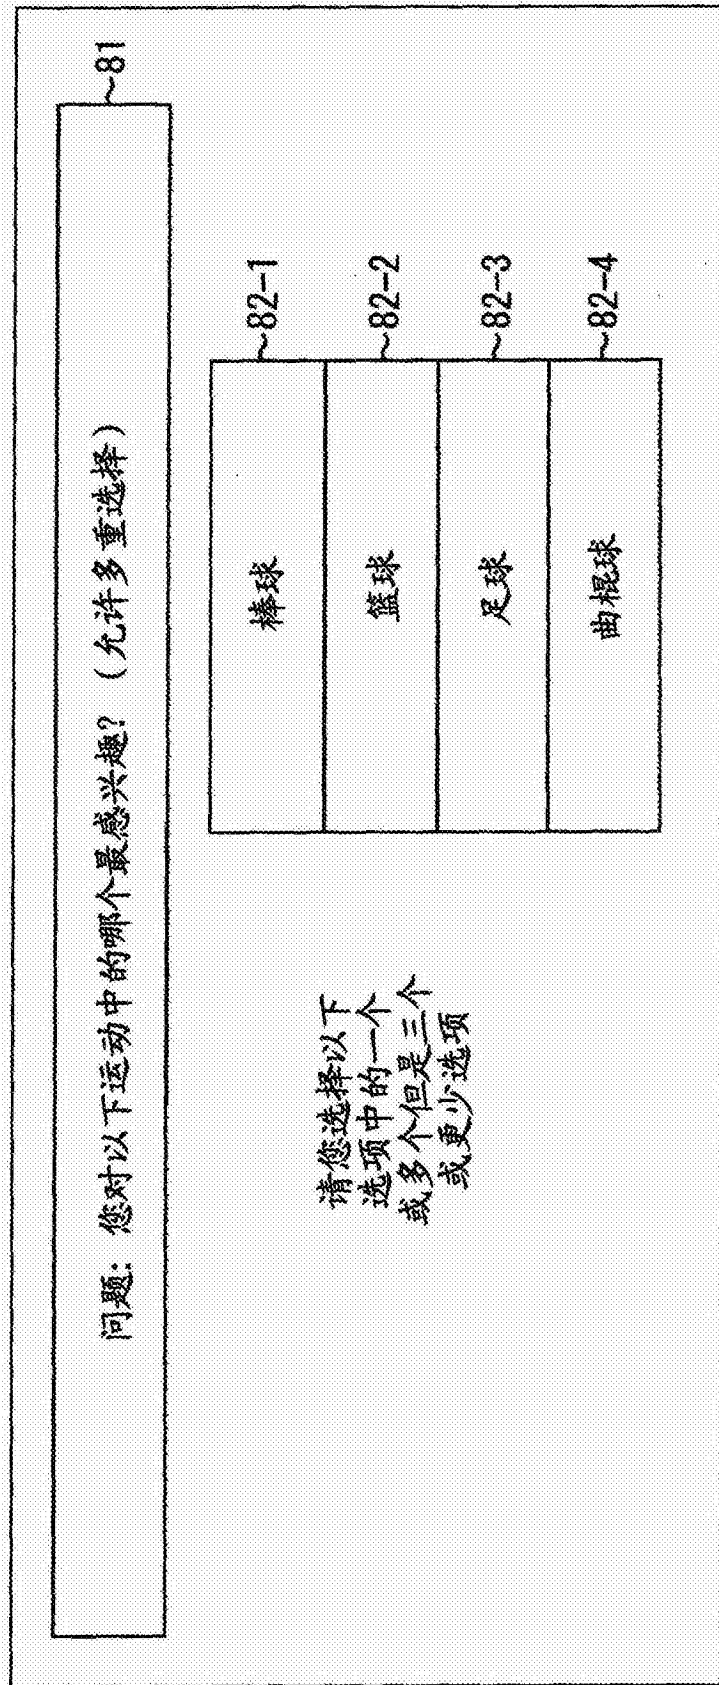 问题：您对以下运动中的哪个最感兴趣？（允许多重选择）
~81
请您选择以下
选项中的一个
或多个但是三个
或更少选项
棒球
~82-1
篮球
~82-2
足球
~82-3
曲棍球
~82-4